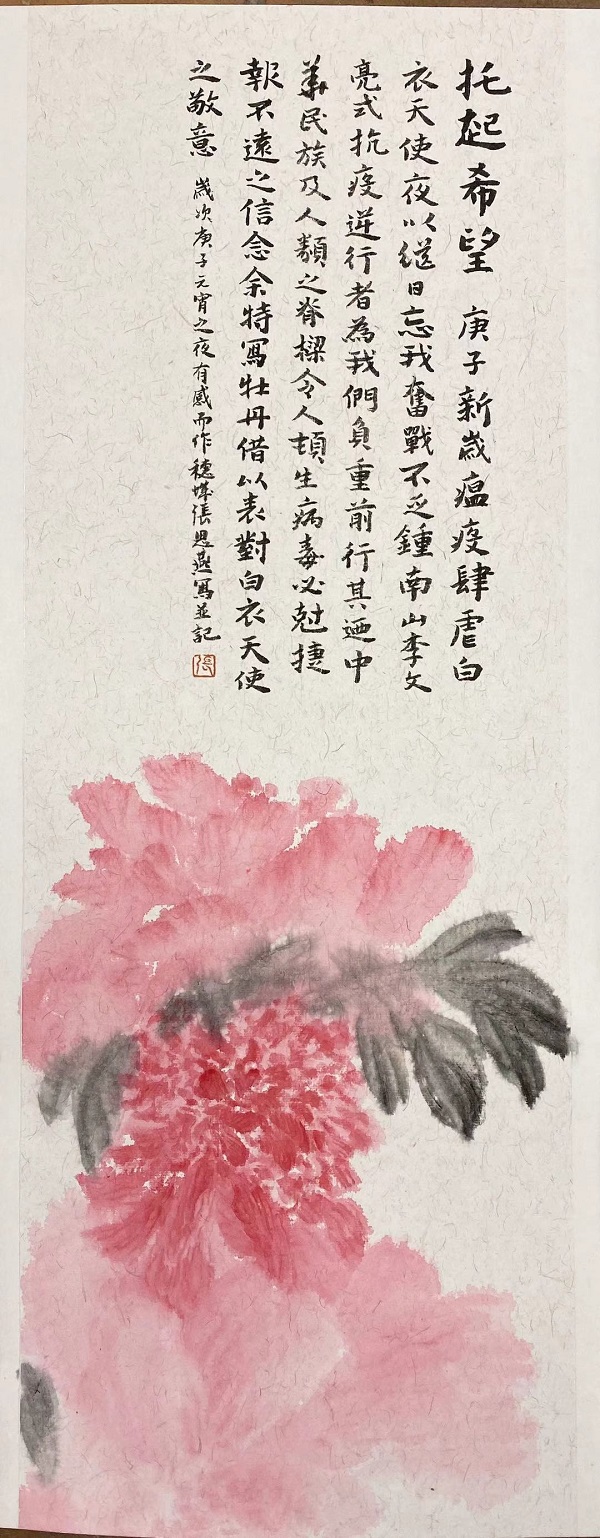 托起希望 庚子新歲瘟疫肆虐白
衣天使夜以继日忘我奮戰不乏鍾南山李文
亮式抗疫逆行者為我們負重前行其迺中
華民族及人類之脊樑令人頓生病毒必尅捷
報不遠之信念余特寫牡丹借以表對白衣天使
之敬意 歲次庚子元宵之夜有感而作穗城張思燕寫並記
張